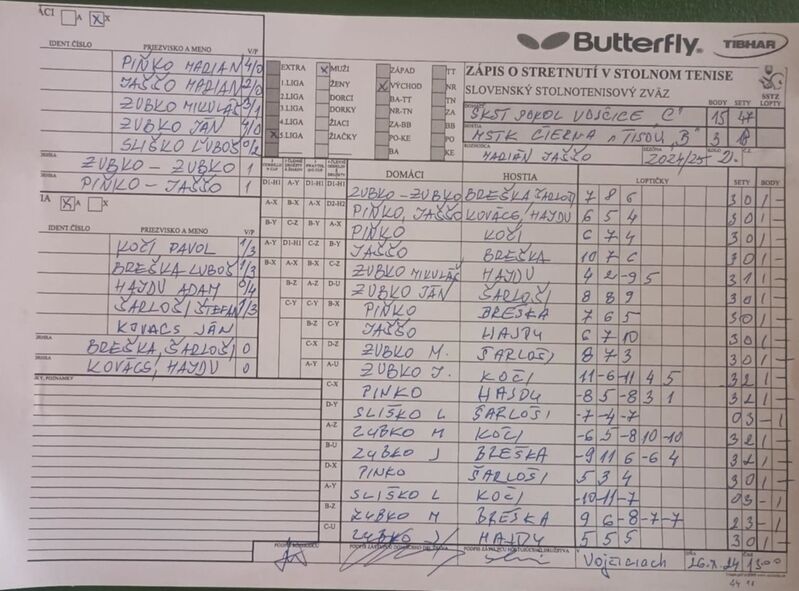 ÁCI A X X
IDENT ČÍSLO PRIEZVISKO A MENO V/P
PIŇKO MARIAN 4/0
JAŠŠO MARIAN 2/0
ZUBKO MIKULÁŠ 3/1
ZUBKO JÁN 4/0
SLIŠKO ĽUBOŠ 0/2
ZUBKO – ZUBKO 1
PIŇKO – JAŠŠO 1
IA X A X
IDENT ČÍSLO PRIEZVISKO A MENO V/P
KOČI PAVOL 1/3
BREŠKA ĽUBOŠ 1/3
HAJDU ADAM 0/4
ŠARLOŠI ŠTEFAN 1/3
KOVACS JÁN
BREŠKA, ŠARLOŠI 0
KOVACS, HAJDU 0
Butterfly TIBHAR
ZÁPIS O STRETNUTÍ V STOLNOM TENISE
SLOVENSKÝ STOLNOTENISOVÝ ZVÄZ
SSTZ
EXTRA X MUŽI ZÁPAD TT
1.LIGA ŽENY X VÝCHOD NR
2.LIGA DORCI BA-TT TN
3.LIGA DORKY NR-TN ZA
4.LIGA ŽIACI ZA-BB BB
X 5.LIGA ŽIAČKY PO-KE PO
BA KE
BODY SETY LOPTY
ŠKST SOKOL VOJČICE "C" 15 47
MSTK ČIERNA n TISOU "B" 3 18
MARIÁN JAŠŠO 2024/25 2.
DOMÁCI HOSTIA LOPTIČKY SETY BODY
ZUBKO – ZUBKO BREŠKA ŠARLOŠI 7 8 6 3 0 1 –
PIŇKO, JAŠŠO KOVÁCS, HAJDU 6 5 4 3 0 1 –
PIŇKO KOČI 6 7 4 3 0 1 –
JAŠŠO BREŠKA 10 7 6 3 0 1 –
ZUBKO MIKULÁŠ HAJDU 4 2 -9 5 3 1 1 –
ZUBKO JÁN ŠARLOŠI 8 8 9 3 0 1 –
PIŇKO BREŠKA 7 6 5 3 0 1 –
JAŠŠO HAJDU 6 7 10 3 0 1 –
ZUBKO M. ŠARLOŠI 8 7 3 3 0 1 –
ZUBKO J. KOČI 11 -6 -11 4 5 3 2 1 –
PIŇKO HAJDU -8 5 -8 3 1 3 2 1 –
SLIŠKO L ŠARLOŠI -7 -4 -7 0 3 – 1
ZUBKO M KOČI -6 5 -8 10 -10 3 2 1 –
ZUBKO J BREŠKA -9 11 6 -6 4 3 2 1 –
PIŇKO ŠARLOŠI 5 3 4 3 0 1 –
SLIŠKO L KOČI -10 -11 -7 0 3 – 1
ZUBKO M BREŠKA 9 6 -8 -7 -7 2 3 – 1
ZUBKO J HAJDU 5 5 5 3 0 1 –
PODPIS ROZHODCU PODPIS ZÁSTUPCU DOMÁCEHO DRUŽSTVA PODPIS ZÁSTUPCU HOSŤUJÚCEHO DRUŽSTVA V Vojčiciach DŇA 26.X.24 ČAS 13:00